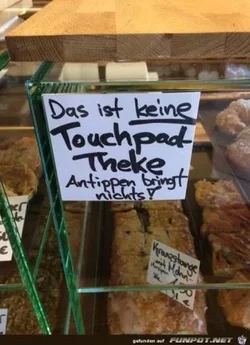 Das ist keine
Touchpad-
Theke
Antippen bringt
nichts!
Kranzstange
mit Mohn
gefunden auf www.FUNPOT.net